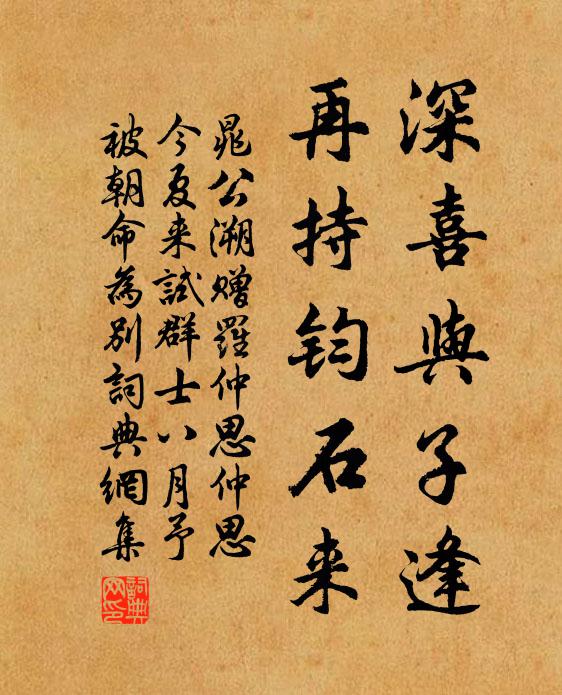 深喜與子逢
再持鈞石来
晁公溯贈羅仲思仲思
今夏来試群士八月予
被朝命為别詞典網集
詞典
网印